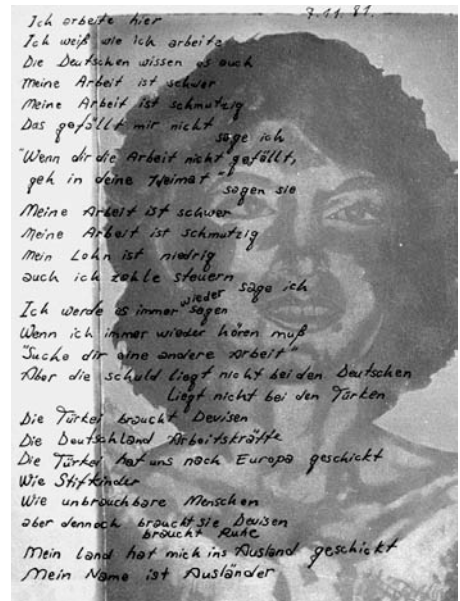 7.11.81.
Ich arbeite hier
Ich weiß wie ich arbeite
Die Deutschen wissen es auch
Meine Arbeit ist schwer
Meine Arbeit ist schmutzig
Das gefällt mir nicht
sage ich
"Wenn dir die Arbeit nicht gefällt,
geh in deine Heimat"
sagen sie
Meine Arbeit ist schwer
Meine Arbeit ist schmutzig
Mein Lohn ist niedrig
auch ich zahle steuern
sage ich
Ich werde es immer wieder sagen
Wenn ich immer wieder hören muß
"Suche dir eine andere Arbeit"
Aber die schuld liegt nicht bei den Deutschen
Liegt nicht bei den Türken
Die Türkei braucht Devisen
Die Deutschland Arbeitskräfte
Die Türkei hat uns nach Europa geschickt
Wie Stifkinder
Wie unbrauchbare Menschen
aber dennoch braucht sie Devisen
braucht Ruhe
Mein land hat mich ins Ausland geschickt
Mein Name ist Ausländer